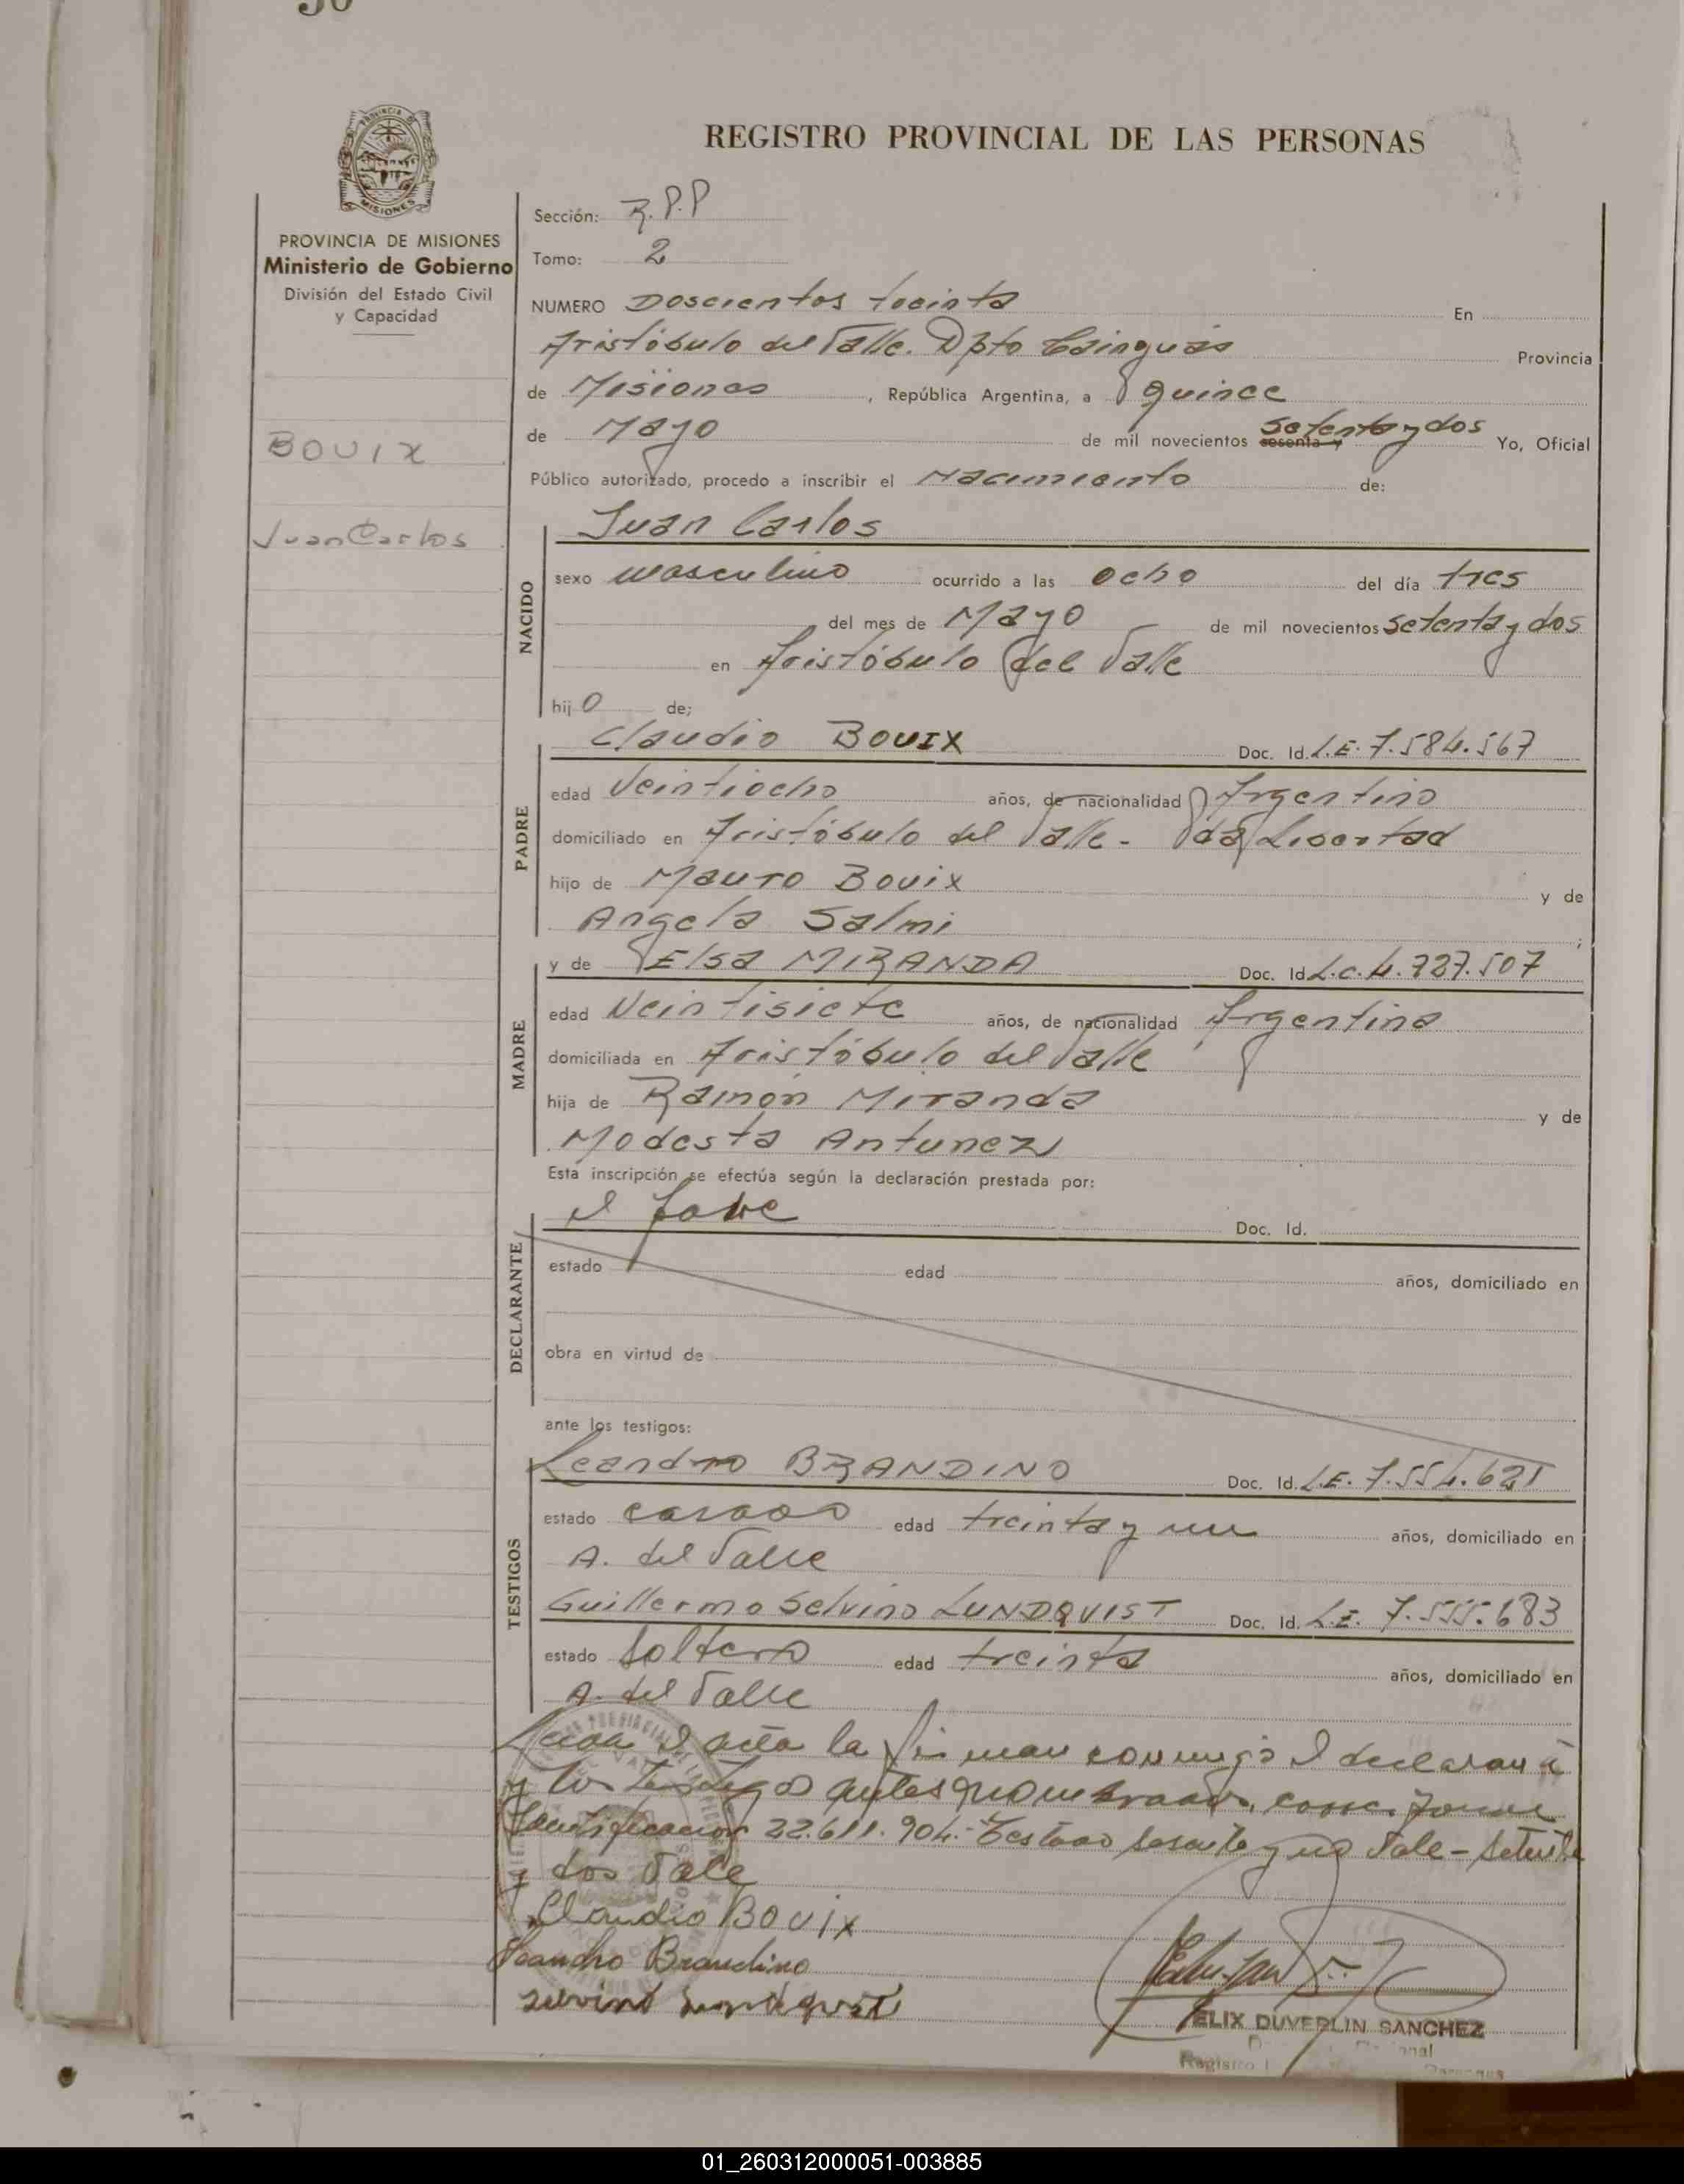 REGISTRO PROVINCIAL DE LAS PERSONAS
PROVINCIA DE MISIONES
Ministerio de Gobierno
División del Estado Civil
y Capacidad
BOUIX
Juan Carlos
Sección: R.P.P
Tomo: 2
NUMERO Doscientos treinta En
Aristóbulo del Valle. Dpto Cainguás Provincia
de Misiones, República Argentina, a quince
de Mayo de mil novecientos sesenta y setenta y dos Yo, Oficial
Público autorizado, procedo a inscribir el Nacimiento de:
NACIDO
Juan Carlos
sexo masculino ocurrido a las ocho del día tres
del mes de Mayo de mil novecientos setenta y dos
en Aristóbulo del Valle
hijo de;
PADRE
Claudio BOUIX Doc. Id. L.E. 7.584.567
edad Veintiocho años, de nacionalidad Argentino
domiciliado en Aristóbulo del Valle - Pda Libertad
hijo de Mauro Bouix y de
Angela Salmi;
MADRE
y de Elsa MIRANDA Doc. Id L.C. 4.727.507
edad Veintisiete años, de nacionalidad Argentina
domiciliada en Aristóbulo del Valle
hija de Ramón Miranda y de
Modesta Antunez
Esta inscripción se efectúa según la declaración prestada por:
DECLARANTE
el padre Doc. Id.
estado edad años, domiciliado en
obra en virtud de
ante los testigos:
TESTIGOS
Leandro BRANDINO Doc. Id. L.E. 7.554.621
estado casado edad treinta y un años, domiciliado en
A. del Valle
Guillermo Selvino LUNDQVIST Doc. Id. L.E. 7.555.683
estado soltero edad treinta años, domiciliado en
A. del Valle
Leida el acta la firman conmigo el declarante
y los testigos antes nombrados,
Identificación 22.611.904.- Testado sesenta y no Vale - setenta
y dos Vale
Claudio BOUIX
Leandro Brandino
Selvino Lundqvist
FELIX DUVERLIN SANCHEZ
01_260312000051-003885